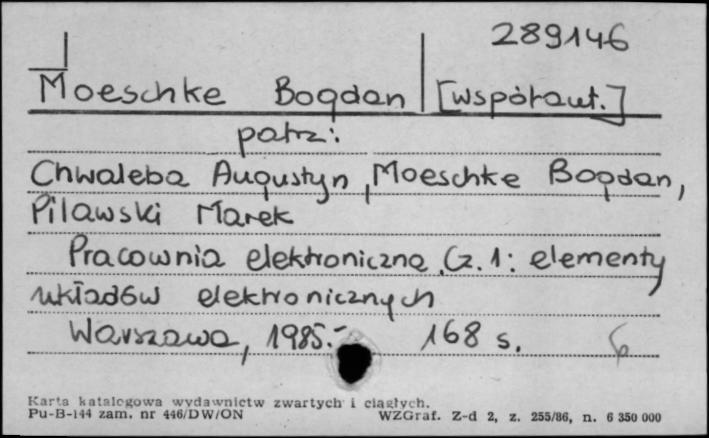 289146
Moeschke Bogdan [współaut.]
patrz:
Chwaleba Augustyn, Moeschke Bogdan,
Pilawski Marek
Pracownia elektroniczna. Cz. 1: elementy
układów elektronicznych
Warszawa, 1985.- 168 s. 6
Karta katalogowa wydawnictw zwartych i ciągłych.
Pu-B-144 zam. nr 446/DW/ON WZGraf. Z-d 2, z. 255/86, n. 6 350 000